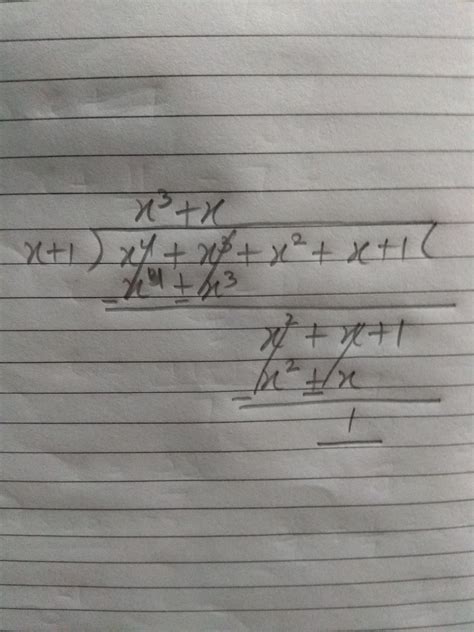 x³ + x
x+1 ) x⁴ + x³ + x² + x + 1 (
x⁴ + x³
- -
x² + x + 1
x² + x
- -
1